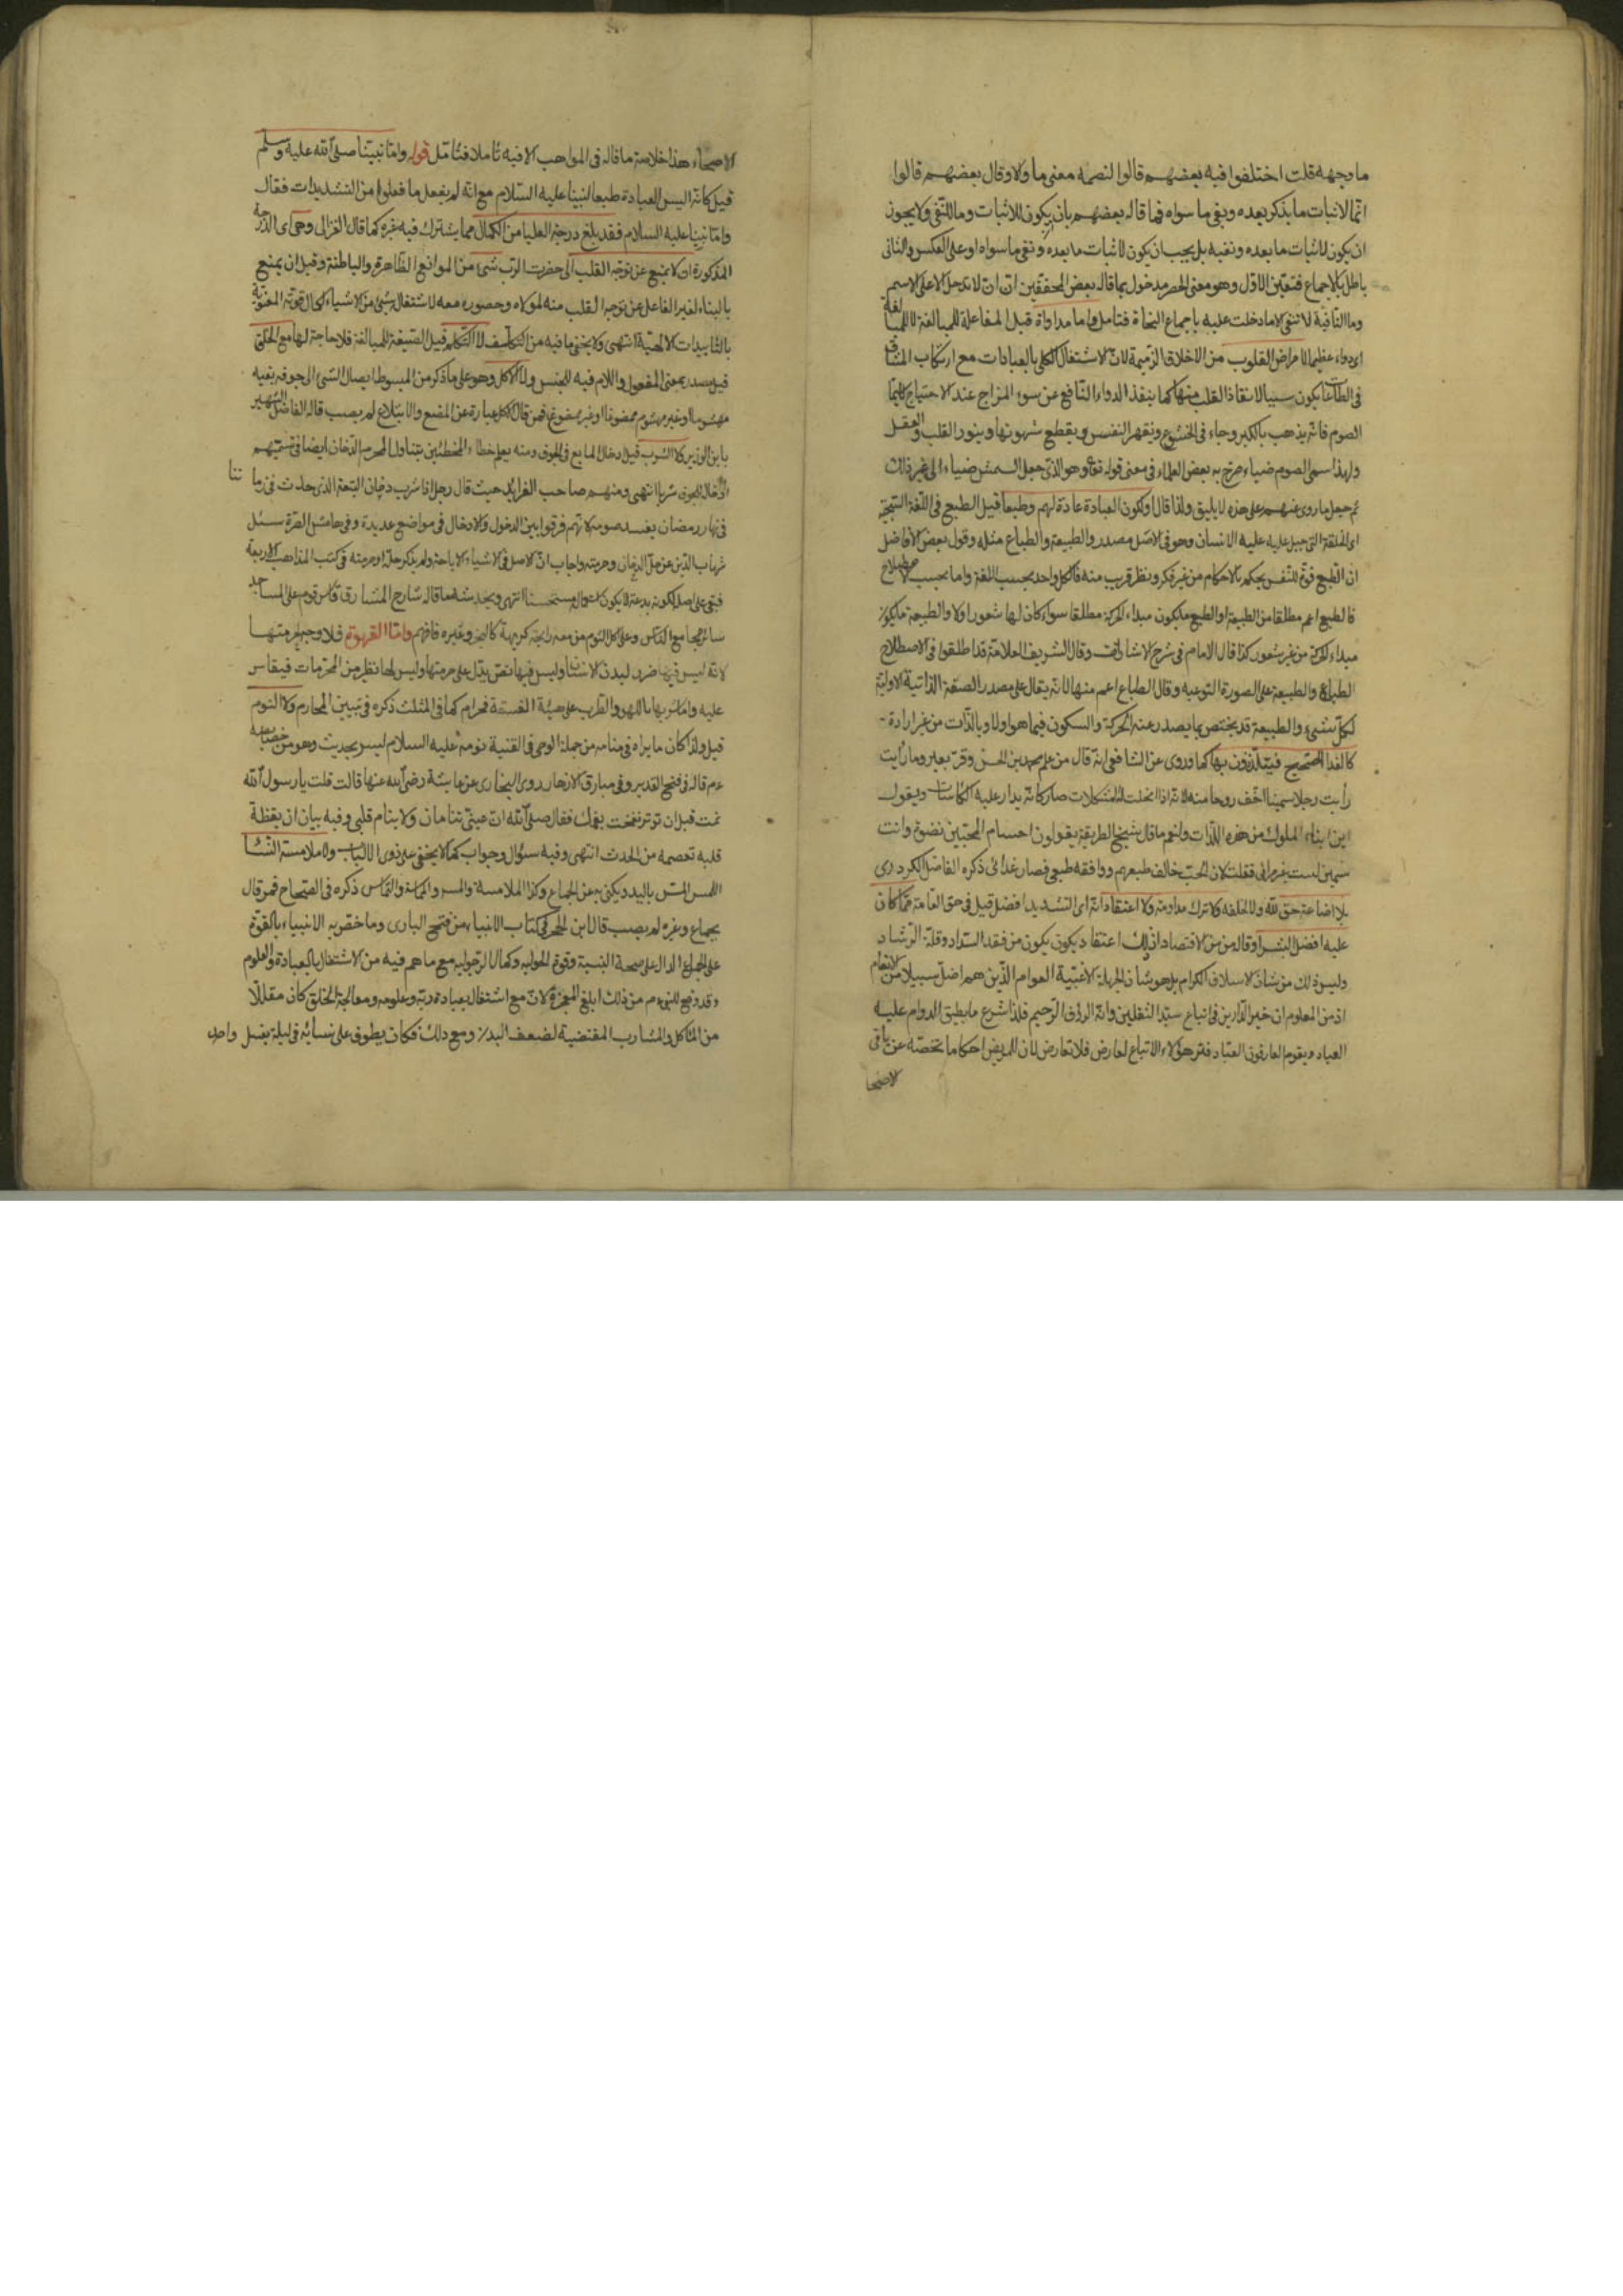 ما وجهه قلت اختلفوا فيه بعضهم قالوا لتضمنه معنى ما ولا وقال بعضهم قالوا
انما لاثبات ما يذكر بعده ونفى ما سواه فما قاله بعضهم بان يكون للاثبات وما للنفى ولا يجوز
ان يكون لاثبات ما بعده ونفيه بل يجب ان يكون لاثبات ما بعده ونفى ما سواه او على العكس والثانى
باطل بالاجماع فتعين الاول وهو معنى الحصر مدخول بما قاله بعض المحققين ان ان لا تدخل الا على الاسم
وما النافية لا تنفى الا ما دخلت عليه باجماع النحاة فتامل واما مداواة قيل المفاعلة للمبالغة لا للمبالغة
اى دواء عظيما لامراض القلوب من الاخلاق الذميمة لان الاشتغال الكلى بالعبادات مع ارتكاب المشاق
فى الطاعات يكون سببا لانقاذ القلب منها كما ينفذ الدواء النافع عن سوء المزاج عند الاحتياج كايما
الصوم فانه يذهب بالكبر وجاء فى الخشوع ويقهر النفس ويقطع شهوتها وينور القلب والعقل
ولهذا سمى الصوم ضياء صرح به بعض العلماء فى معنى قوله تعالى وهو الذى جعل الشمس ضياء الى غير ذلك
ثم حمل ما روى عنهم على هذه لا يليق ولذا قال او لكون العبادة عادة لهم وطبعا قيل الطبع فى اللغة السجية
اى الخلقة التى جبل عليه الانسان وهو فى الاصل مصدر والطبيعة والطباع مثله وقول بعض الافاضل
ان الطبع قوة للنفس يحكم بالاحكام من غير فكر ونظر قريب منه فالكل واحد بحسب اللغة واما بحسب الاصطلاح
فالطبع اعم مطلقا من الطبيعة او الطبع ما يكون مبداء الحركة مطلقا سواء كان لها شعور اولا والطبيعة ما يكون
مبداء الحركة من غير شعور كذا قال الامام فى شرح الاشارات وقال الشريف العلامة قد اطلقوا فى الاصطلاح
الطباع والطبيعة على الصورة النوعيه وقال الطباع اعم منها لانه يقال على مصدر الصفة الذاتية الاولية
لكل شىء والطبيعة قد يختص بما يصدر عنه الحركة والسكون فيما هو اولا وبالذات من غير ارادة
كالغذاء الصحيح فيتلذذون بها كما روى عن الشافعى انه قال من علم محمد بن الحسن وقر بعير وما رايت
رأيت رجلا سمينا اخف روحا منه لانه اذا انحلت له المشكلات صار كانه يدار عليه الكاسات ويقول
اين ابناء الملوك من هذه اللذات ولنعم ما قال شيخ الطريقة يقولون اجسام المحبين نضوة وانت
سمين لست غير مرائى فقلت لان الحب خالف طبعهم ووافقه طبعى فصار غذائى ذكره الفاضل الكردرى
بلا اضاعة حق لله ولا لخلقه ولا ترك مداومة ولا اعتقاد انه اى التشديد افضل قيل فى حق العامة مما كان
عليه افضل البشر او قاله من من الاقتصاد اذ ذلك اعتقاد يكون من فقد السداد وقلة الرشاد
وليس ذلك من شان الاسلاف الكرام بل هو شان الجهلة الاغبية العوام الذين هم اضل سبيلا من الانعام
اذ من المعلوم ان خير الدارين فى اتباع سيد الثقلين وانه الرؤف الرحيم فلذا شرع ما يطيق الدوام عليه
العباد ويقوم العارفون العباد فترك هؤلاء الاتباع لعارض فلا تعارض لان للمريض احكاما تختصه عن باقى
الاصحا
الاصحاء هذا خلاصة ما قاله فى المواهب الا فيه تاملا فتامل قوله واما نبينا صلى الله عليه وسلم
قيل كانه اليس العبادة طبعا لنبينا عليه السلام مع انه لم يفعل ما فعلوا من التشديدات فقال
واما نبينا عليه السلام فقد بلغ درجة العليا من الكمال مما يشترك فيه غيره كما قال الغزالى وهى اى الدرجة
المذكورة ان لا يمنع عن توجه القلب الى حضرت الرب شىء من الموانع الظاهرة والباطنة وقيل ان يمنع
بالبناء لغير الفاعل عن توجه القلب منه لمولاه وحضوره معه لاشتغال بشىء من الاشياء لكمال قوته المعنوية
بالتاييدات الالهية انتهى ولا يخفى ما فيه من التكلف لا التكلم قيل الصيغة للمبالغة فلا حاجة لها مع الخلق
قيل مصدر بمعنى المفعول واللام فيه للجنس ولا الاكل وهو على ما ذكر من المبسوط ايصال الشىء الى جوفه بفيه
مهشوما او غير مهشوم ممضوغا او غير ممضوغ فمن قال الاكل عبارة عن المضغ والابتلاع لم يصب قاله الفاضل الشهير
بابن الوزير كلا الشرب قيل ادخال المايع فى الجوف ومنه يعلم خطاء المخطئين بتناول المحرم الدخان ايضا فى تسميتهم
ادخال الجوف شربا انتهى ومنهم صاحب الفرايد حيث قال رجل اذا شرب دخان البدعة الذى حدث فى زما
ننا
فى نهار رمضان يفسد صومه لانهم فرقوا بين الدخول والادخال فى مواضع عديدة وفى هامش الغرة سئل
شهاب الدين عن حل الدخان وحرمته واجاب ان الاصل فى الاشياء الاباحة ولم يذكر حله او حرمته فى كتب المذاهب الاربعة
فبقى على اصله لكونه بدعة لا يكون مستحسنا انتهى ويجد شاهدا قاله شارح المشارق قوم على المساجد
سائر مجامع الناس وعلى اكل الثوم من معه رايحة كريهة كالبخر وغيره فافهم واما القهوة فلا وجه لحرمتها
لانه ليس فيها ضرر لبدن الانسان وليس فيها نص يدل على حرمتها وليس لها نظير من المحرمات فيقاس
عليه واما شربها باللهو والطرب على هيئة الفسقة فحرام كما فى المثلث ذكره فى تبيين المحارم ولا النوم
قيل ولذا كان ما يراه فى منامه من جملة الوحى فى القنية نومه عليه السلام ليس بحديث وهو من خصائصه
عم قاله فى فتح القدير وفى مبارق الازهار روى البخارى عن عايشة رضى الله عنها قالت قلت يا رسول الله
نمت قبل ان توتر فقال صلى الله ان عينى تنامان ولا ينام قلبى وفيه بيان ان يقظة
قلبه تعصمه من الحدث انتهى وفيه سؤال وجواب كما لا يخفى على ذوى الالباب ولا ملامسة النساء
اللمس المس باليد ويكنى به عن الجماع وكذا الملامسة والمس والمماسة والتماس ذكره فى الصحاح فمن قال
بجماع وغيره لم يصب قال ابن الحجر فى كتاب الانبياء من فتح البارى وما خص به الانبياء بالقوة
على الجماع الدال على صحة البنية وقوة الفحولية وكمال الرجولية مع ما هم فيه من الاشتغال بالعبادة والعلوم
وقد وقع للنبى عم من ذلك ابلغ المعجزة لان مع اشتغال بعبادة ربه وعلومه ومعالجة الخلق كان مقللا
من المآكل والمشارب المقتضية لضعف البدن ومع ذلك فكان يطوف على نسائه فى ليلة بغسل واحد